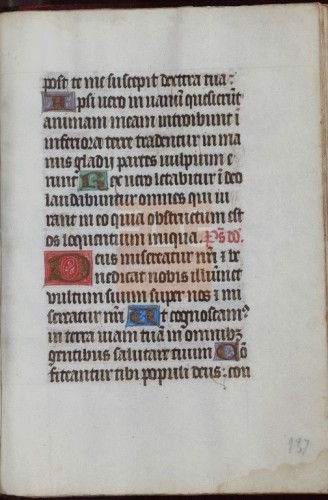 post te me suscepit dextera tua:
Ipsi vero in vanum quesierūt
animam meam introibunt ī
inferiora terre tradentur in ma
nus gladij partes vulpium e
runt Rex vero letabitur ī deo
laudabuntur omnes qui iu
rant in eo quia obstructum est
os loquentium iniqua. Ps̄ dd̄.
Deus misereatur nr̄i ⁊ be
nedicat nobis illumīet
vultum suum super nos ⁊ mi
sereatur nr̄i Ut cognoscam⁹
in terra viam tuā in omnibꝫ
gentibus salutare tuum Cō
fiteantur tibi populi deus: con
137